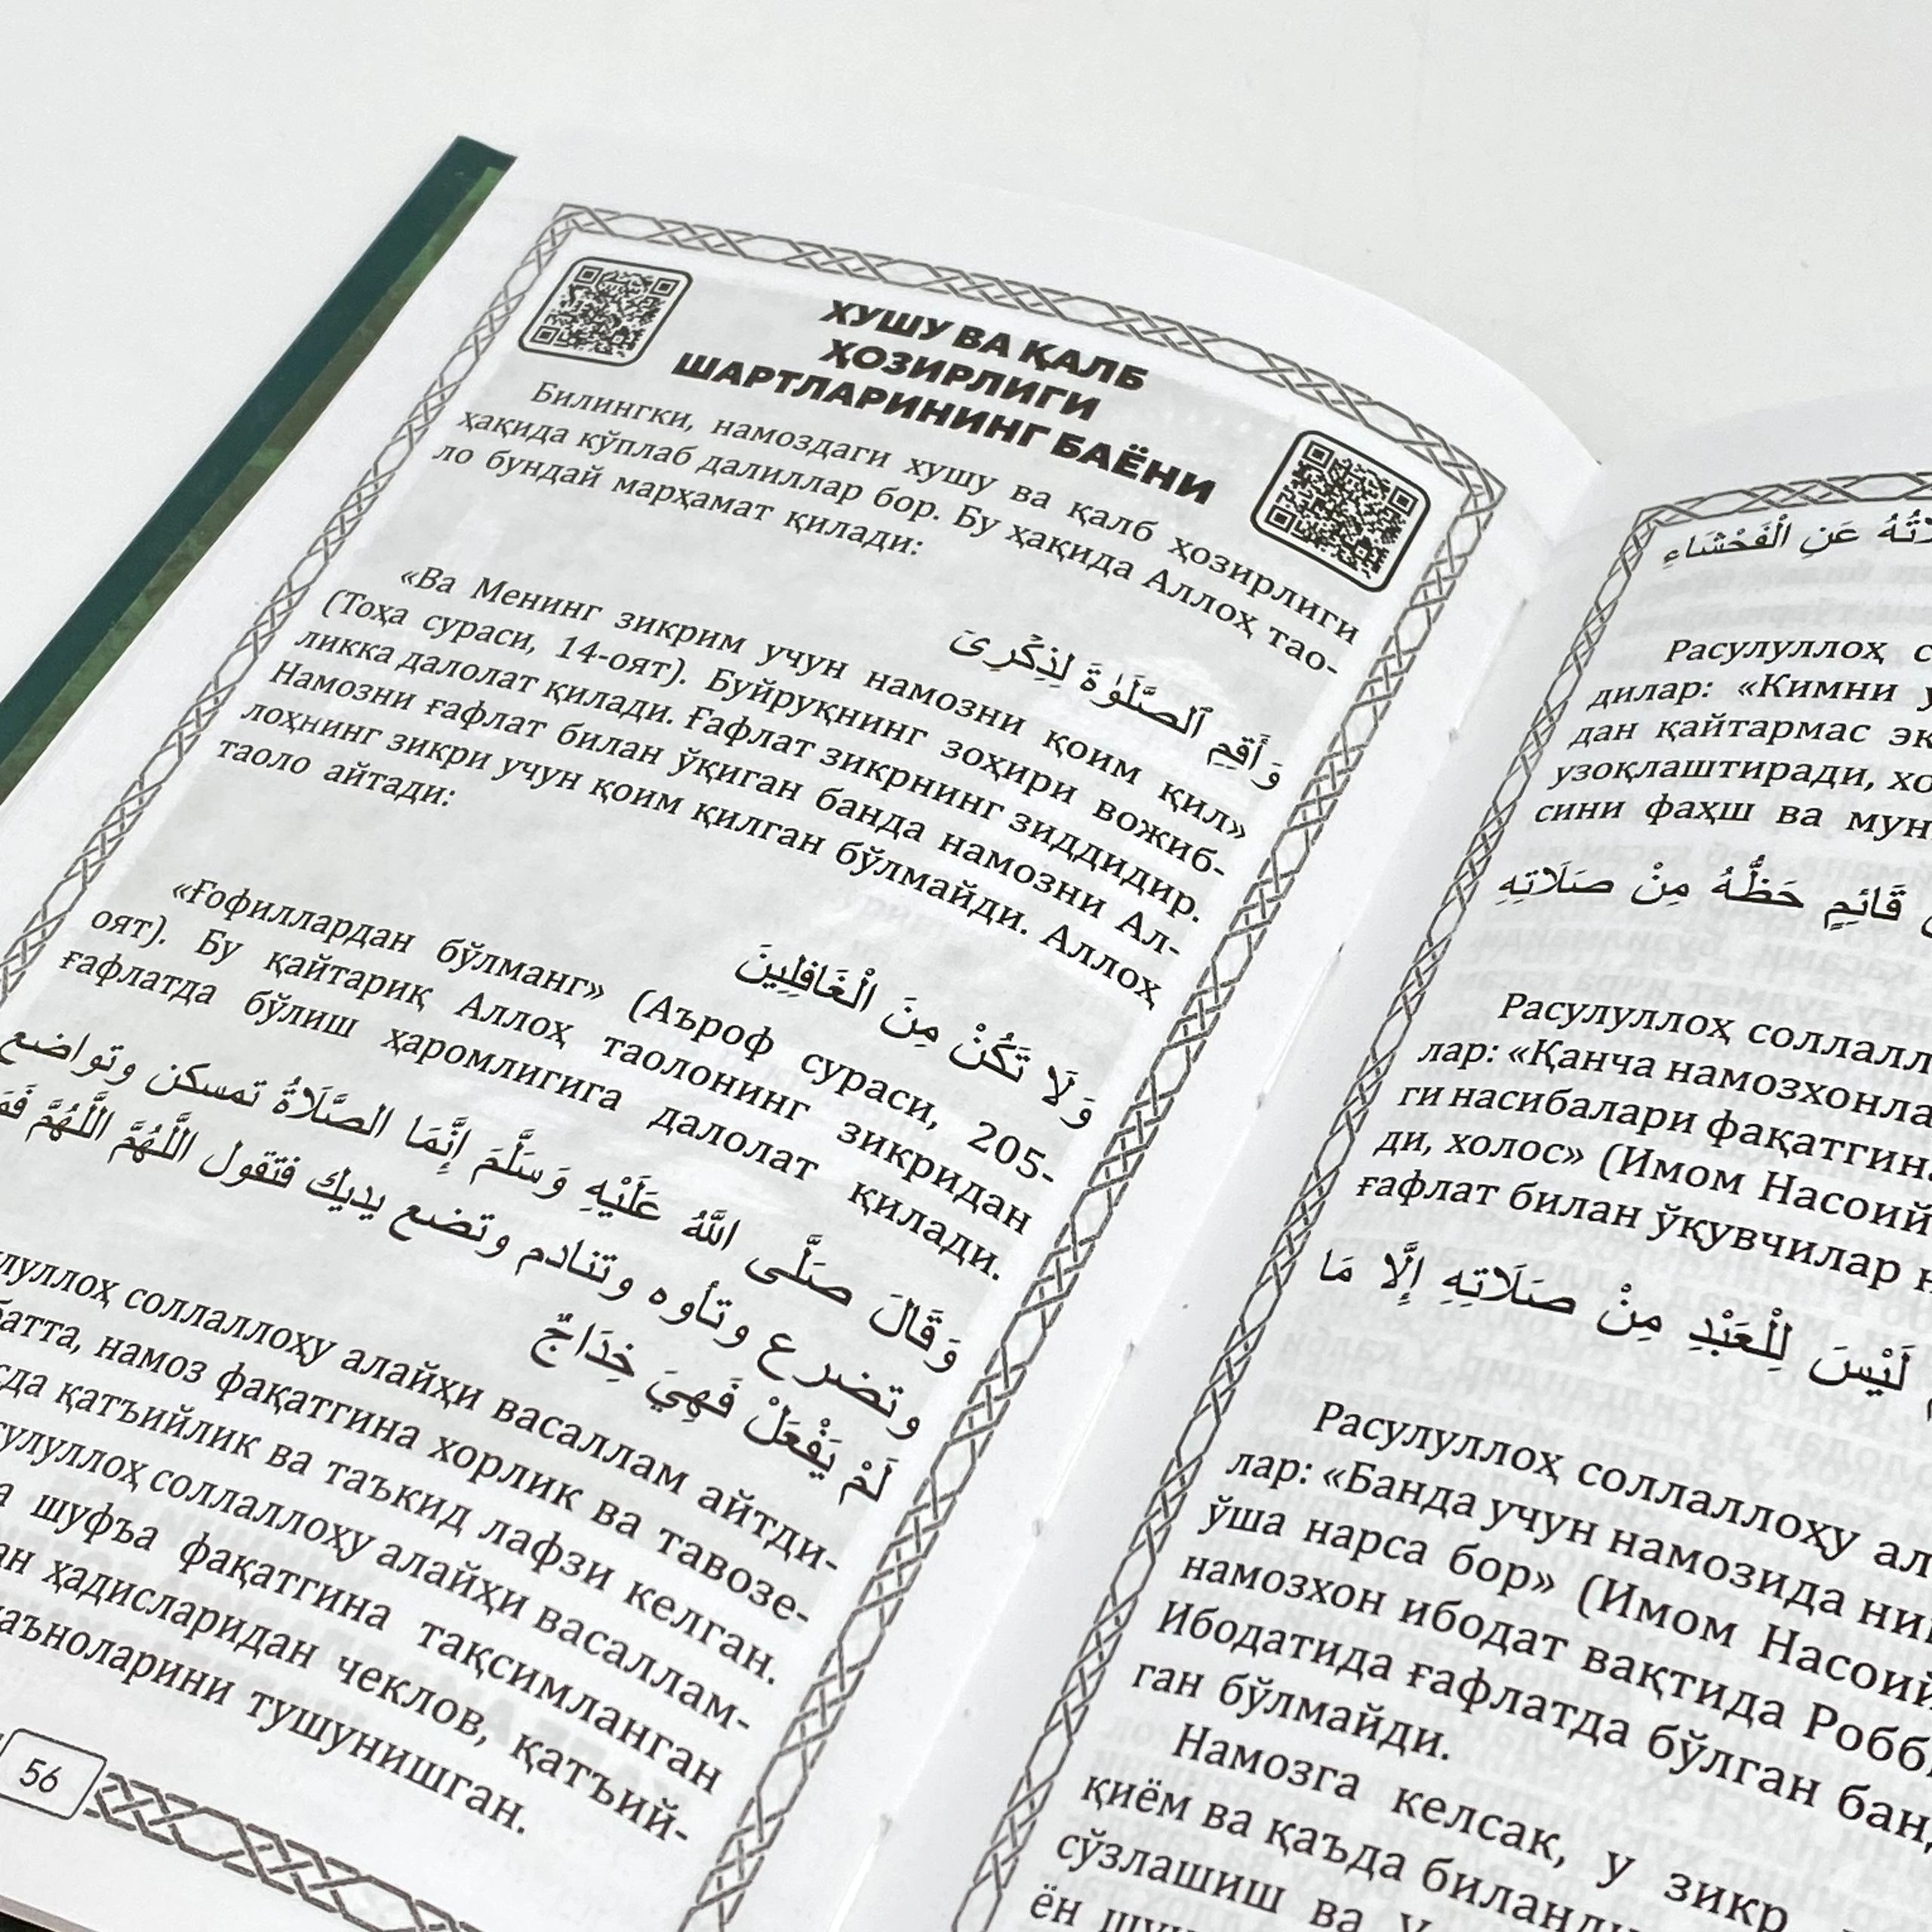 ХУШУ ВА ҚАЛБ
ҲОЗИРЛИГИ
ШАРТЛАРИНИНГ БАЁНИ
Билингки, намоздаги хушу ва қалб ҳозирлиги
ҳақида кўплаб далиллар бор. Бу ҳақида Аллоҳ тао-
ло бундай марҳамат қилади:
وَأَقِمِ ٱلصَّلَوٰةَ لِذِكْرِىٓ
«Ва Менинг зикрим учун намозни қоим қил»
(Тоҳа сураси, 14-оят). Буйруқнинг зоҳири вожиб-
ликка далолат қилади. Ғафлат зикрнинг зиддидир.
Намозни ғафлат билан ўқиган банда намозни Ал-
лоҳнинг зикри учун қоим қилган бўлмайди. Аллоҳ
таоло айтади:
وَلَا تَكُنْ مِنَ الْغَافِلِينَ
«Ғофиллардан бўлманг» (Аъроф сураси, 205-
оят). Бу қайтариқ Аллоҳ таолонинг зикридан
ғафлатда бўлиш ҳаромлигига далолат қилади.
وَقَالَ صَلَّى اللهُ عَلَيْهِ وَسَلَّمَ إِنَّمَا الصَّلَاةُ تمسكن وتواضع
وتضرع وتأوه وتنادم وتضع يديك فتقول اللَّهُمَّ اللَّهُمَّ
لَمْ يَفْعَلْ فَهِيَ خِدَاجٌ
соллаллоҳу алайҳи васаллам айтди-
намоз фақатгина хорлик ва тавозе-
қатъийлик ва таъкид лафзи келган.
соллаллоҳу алайҳи васаллам-
шуфъа фақатгина тақсимланган
ҳадисларидан чеклов, қатъий-
тушунишган.
56
عَنِ الْفَحْشَاءِ
Расулуллоҳ
дилар: «Кимни
дан қайтармас
узоқлаштиради,
сини фаҳш ва
قَائِمٍ حَظُّهُ مِنْ صَلَاتِهِ
Расулуллоҳ
лар: «Қанча
ги насибалари
ди, холос» (Имом
ғафлат билан ўқувчилар
لَيْسَ لِلْعَبْدِ مِنْ صَلَاتِهِ إِلَّا مَا
Расулуллоҳ соллаллоҳу
лар: «Банда учун намозида
ўша нарса бор» (Имом
намозхон ибодат вақтида
Ибодатида ғафлатда бўлган
ган бўлмайди.
Намозга келсак, у зикр
қиём ва қаъда
сўзлашиш ва
ён